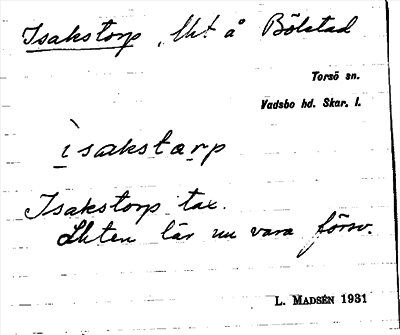 Isakstorp, lht å Bölstad
Torsö sn.
Vadsbo hd. Skar. l.
ìsakstærp
Isakstorp tax.
Lhten lär nu vara försv.
L. MADSÉN 1931